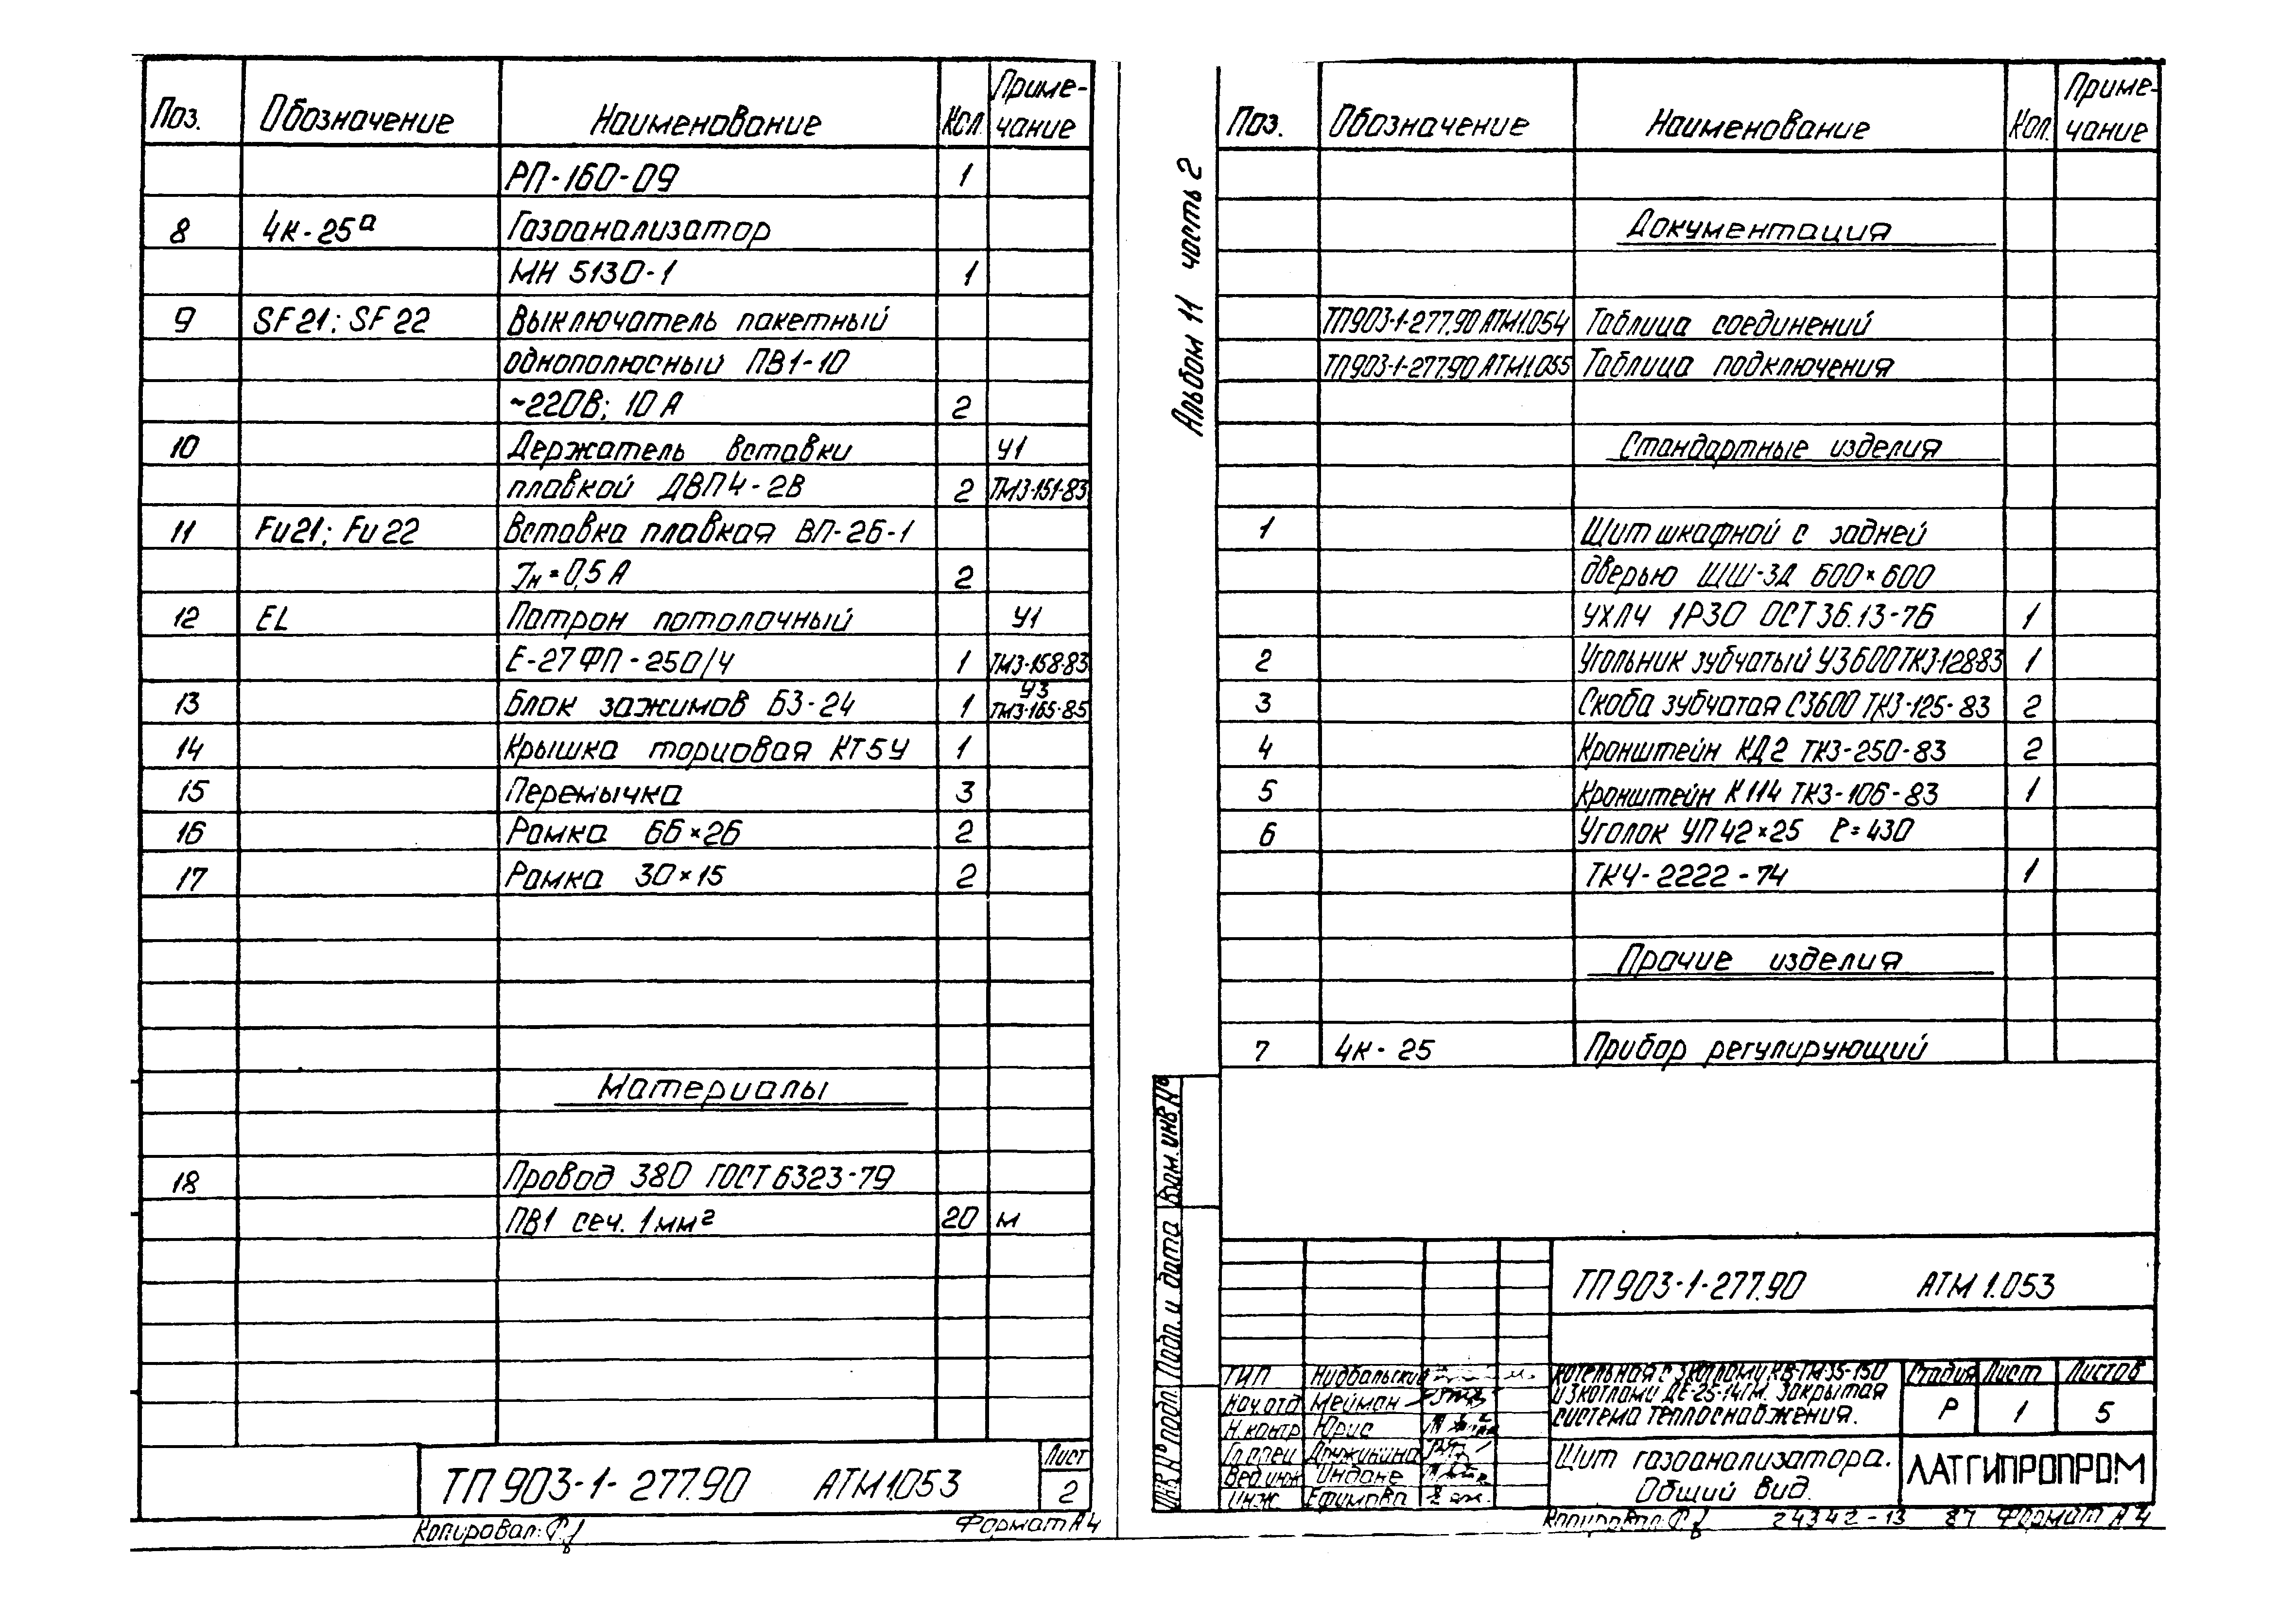 Поз. Обозначение Наименование Кол. Приме-
чание
РП-160-09 1
8 4К-25а Газоанализатор
МН 5130-1 1
9 SF21; SF22 Выключатель пакетный
однополюсный ПВ1-10
~220В; 10А 2
10 Держатель вставки У1
плавкой ДВП4-2В 2 ТМ3-151-83
11 Fu21; Fu22 Вставка плавкая ВП-2Б-1
Iн=0,5А 2
12 EL Патрон потолочный У1
Е-27ФП-250/4 1 ТМ3-158-83
13 Блок зажимов БЗ-24 1 У3 ТМ3-165-85
14 Крышка торцовая КТ5У 1
15 Перемычка 3
16 Рамка 66×26 2
17 Рамка 30×15 2
Материалы
18 Провод 380 ГОСТ 6323-79
ПВ1 сеч. 1мм² 20 м
ТП903-1-277.90 АТМ1.053
Лист
2
Копировал:
Формат А4
Альбом 11 часть 2
Поз. Обозначение Наименование Кол. Приме-
чание
Документация
ТП903-1-277.90 АТМ1.054 Таблица соединений
ТП903-1-277.90 АТМ1.055 Таблица подключения
Стандартные изделия
1 Щит шкафной с задней
дверью ЩШ-ЗД 600×600
УХЛ4 1Р30 ОСТ36.13-76 1
2 Угольник зубчатый УЗ600ТК3-128-83 1
3 Скоба зубчатая СЗ600 ТК3-125-83 2
4 Кронштейн КД2 ТК3-250-83 2
5 Кронштейн К114 ТК3-106-83 1
6 Уголок УП42×25 ℓ=430
ТК4-2222-74 1
Прочие изделия
7 4К-25 Прибор регулирующий
Взам. инв. №
Подп. и дата
Инв. № подл.
ТП903-1-277.90 АТМ1.053
ГИП Нидбальский
Нач.отд Мейман
Н.контр Юрис
Гл.спец Дружинина
Вед.инж Индане
Инж. Ефимова
Котельная с 3 котлами КВ-ТМ35-150
и 3 котлами ДЕ-25-14ГМ. Закрытая
система теплоснабжения.
Стадия Лист Листов
Р 1 5
Щит газоанализатора.
Общий вид.
ЛАТГИПРОПРОМ
Копировал:
24342-13 87 Формат А4